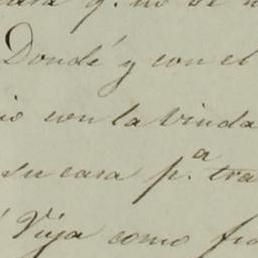 q. no se
Donde y con el
con la Vinda
su casa p.ª tra
Vija como